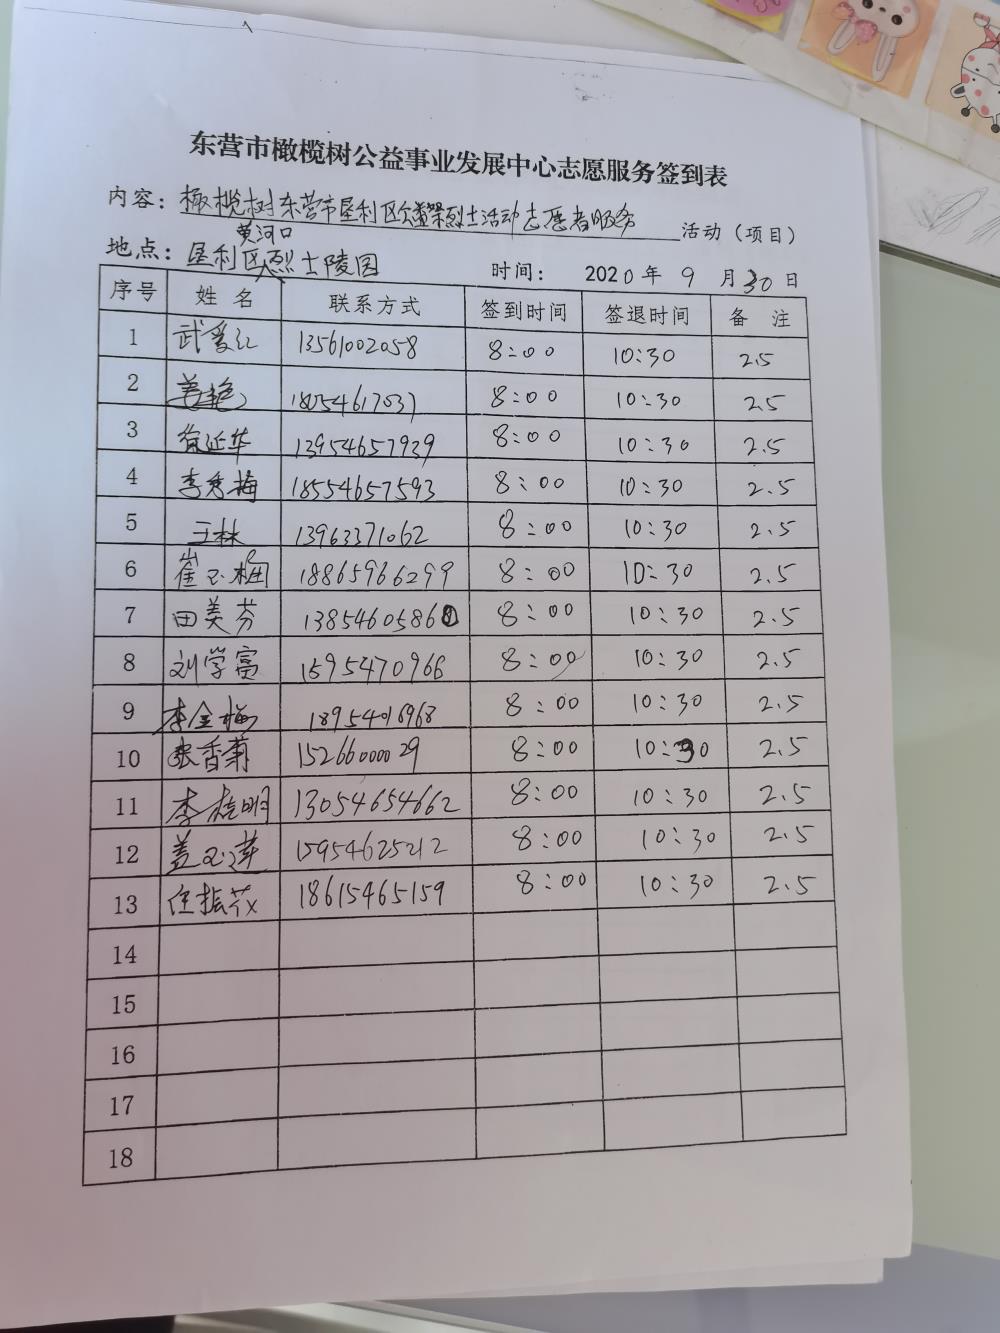 东营市橄榄树公益事业发展中心志愿服务签到表
内容：橄榄树东营市垦利区公祭烈士活动志愿者服务 活动（项目）
黄河口
地点：垦利区烈士陵园 时间： 2020年 9 月30日
序号 姓 名 联系方式 签到时间 签退时间 备 注
1 武爱红 13561002058 8:00 10:30 2.5
2 18054617037 8:00 10:30 2.5
3 徐延华 13954657939 8:00 10:30 2.5
4 李秀梅 18554657593 8:00 10:30 2.5
5 王林 13963371062 8:00 10:30 2.5
6 崔玉梱 18865966299 8:00 10:30 2.5
7 田美芬 1385460586 8:00 10:30 2.5
8 刘学富 1595470966 8:00 10:30 2.5
9 李金梅 18954016968 8:00 10:30 2.5
10 张香菊 15266000029 8:00 10:30 2.5
11 李桂明 13054654662 8:00 10:30 2.5
12 盖玉莲 15954625212 8:00 10:30 2.5
13 任振芬 18615465159 8:00 10:30 2.5
14
15
16
17
18